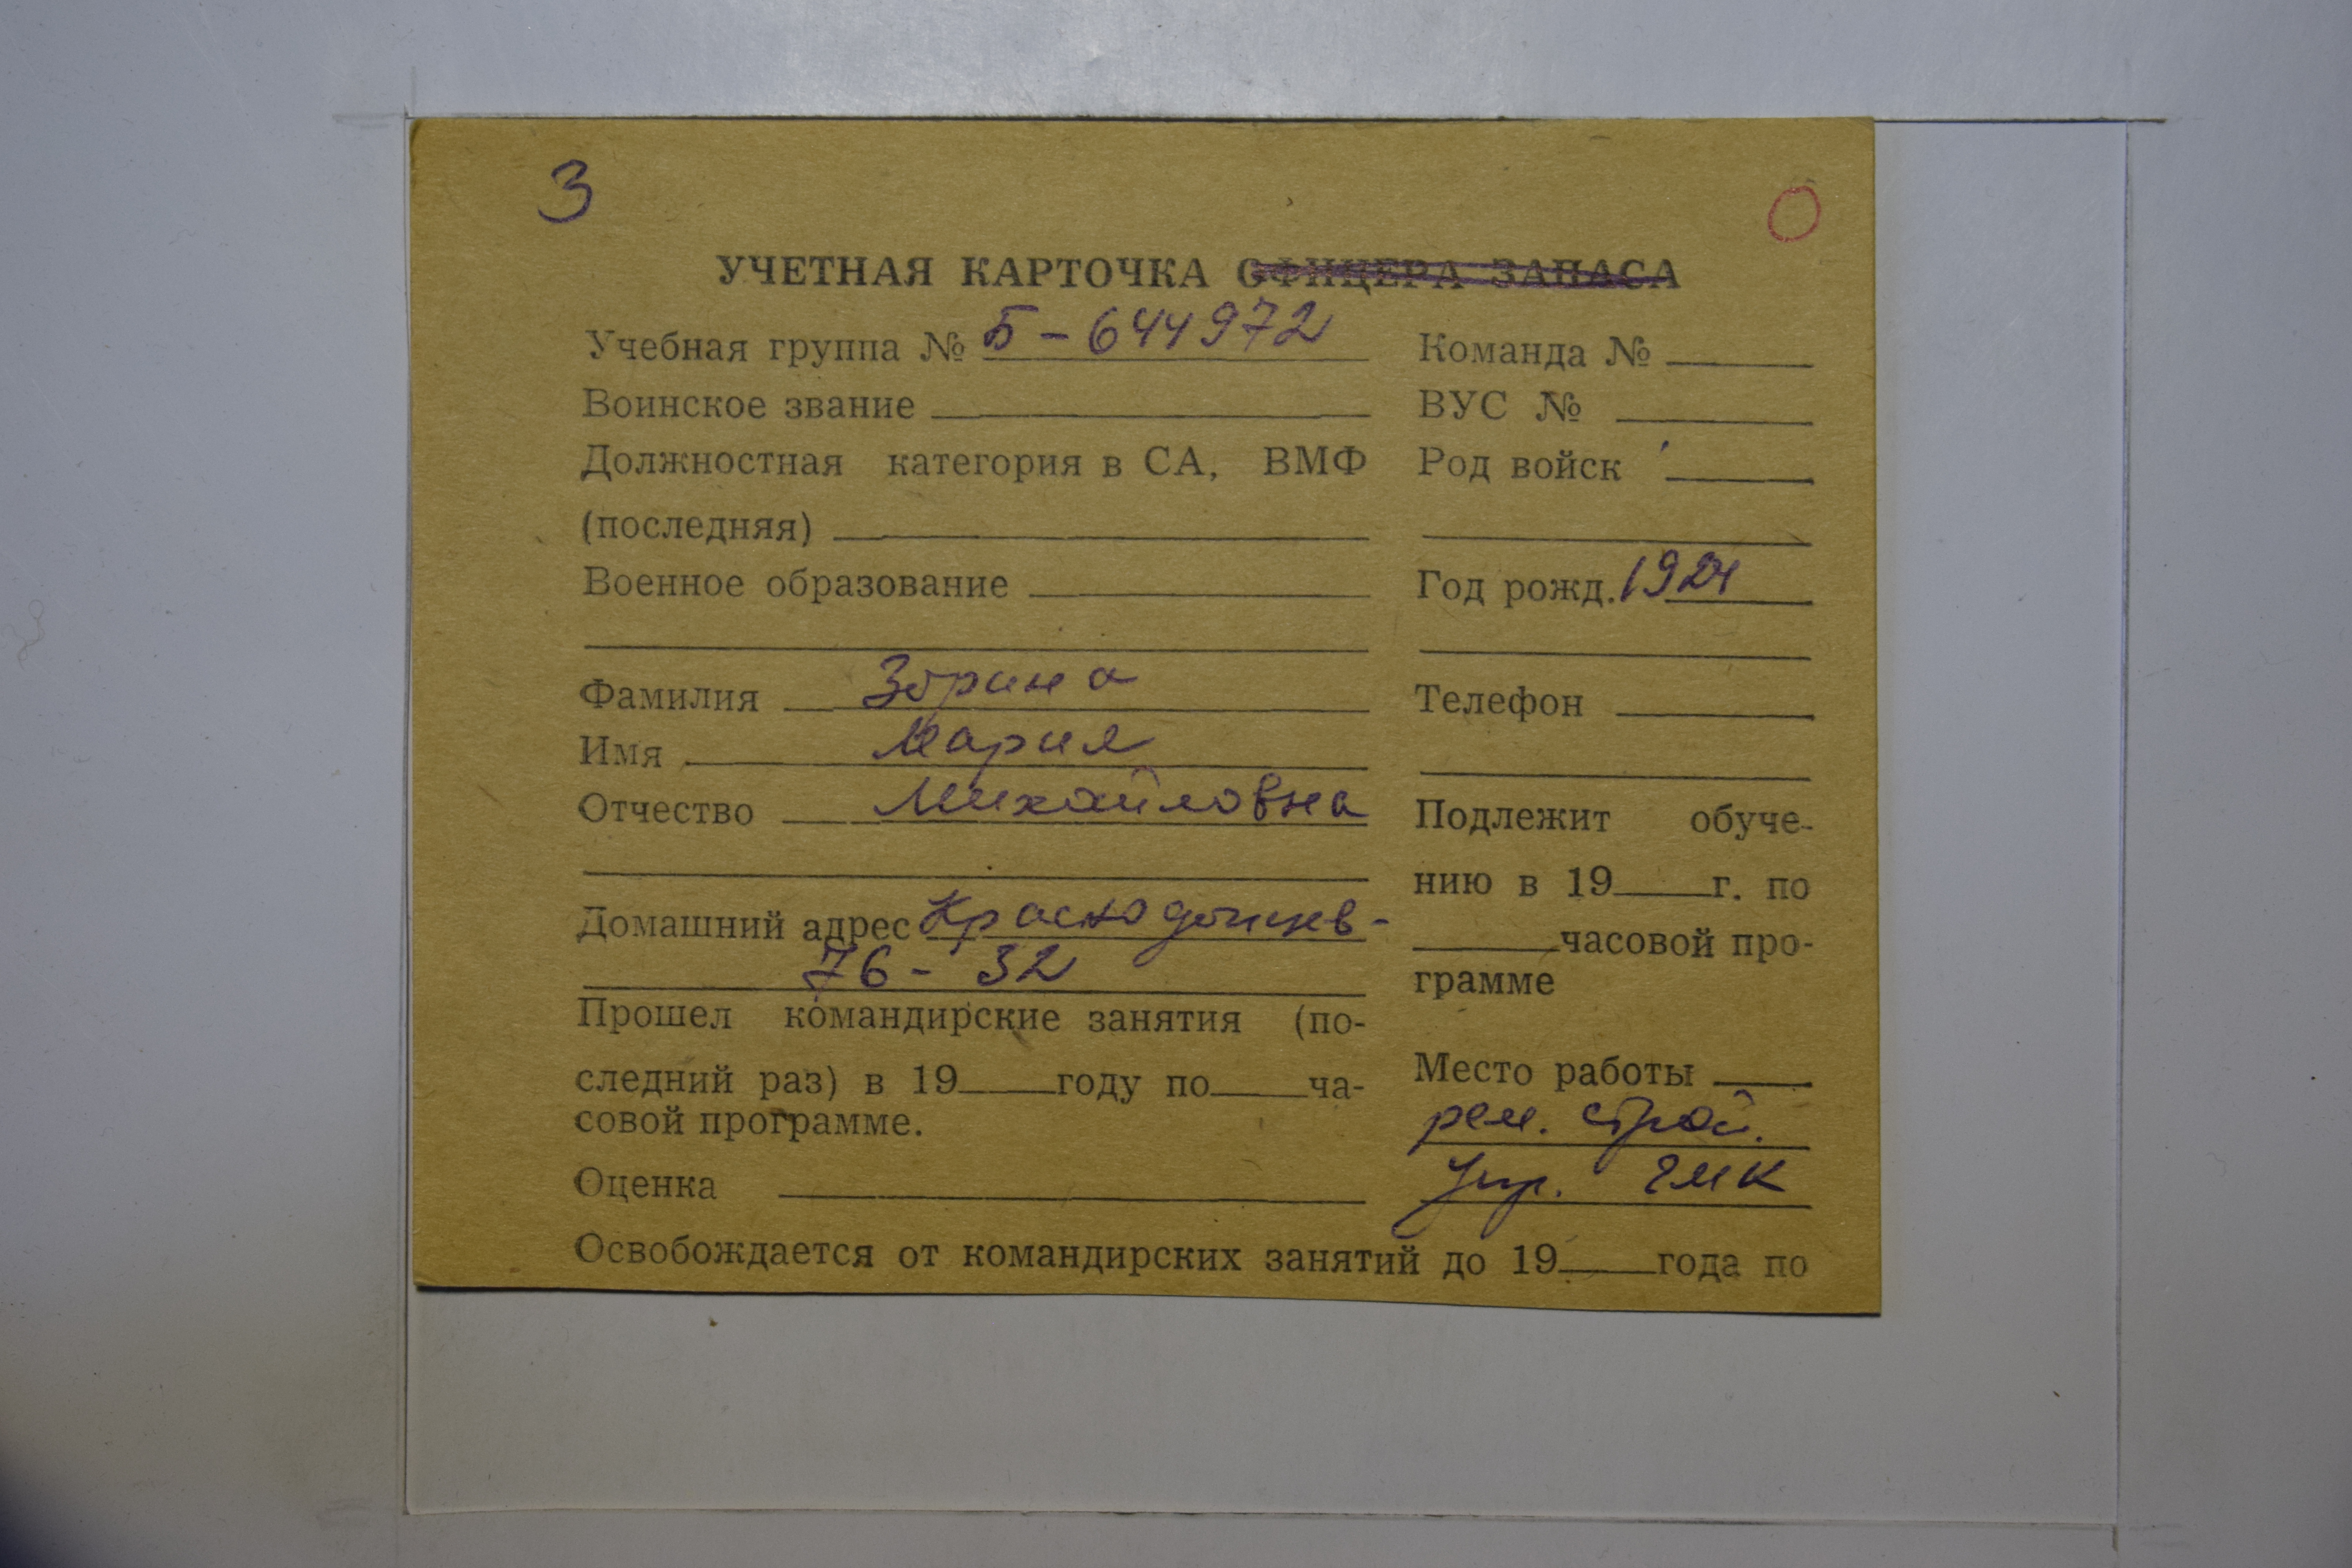 З
О
УЧЕТНАЯ КАРТОЧКА ОФИЦЕРА ЗАПАСА
Учебная группа № Б-644972
Воинское звание
Должностная категория в СА, ВМФ
(последняя)
Военное образование
Фамилия Зорина
Имя Мария
Отчество Михайловна
Домашний адрес Краснодонцев-
76-32
Прошел командирские занятия (по-
следний раз) в 19 году по ча-
совой программе.
Оценка
Команда №
ВУС №
Род войск
Год рожд. 1924
Телефон
Подлежит обуче-
нию в 19 г. по
часовой про-
грамме
Место работы
рем. строй.
Упр. ЧМК
Освобождается от командирских занятий до 19 года по